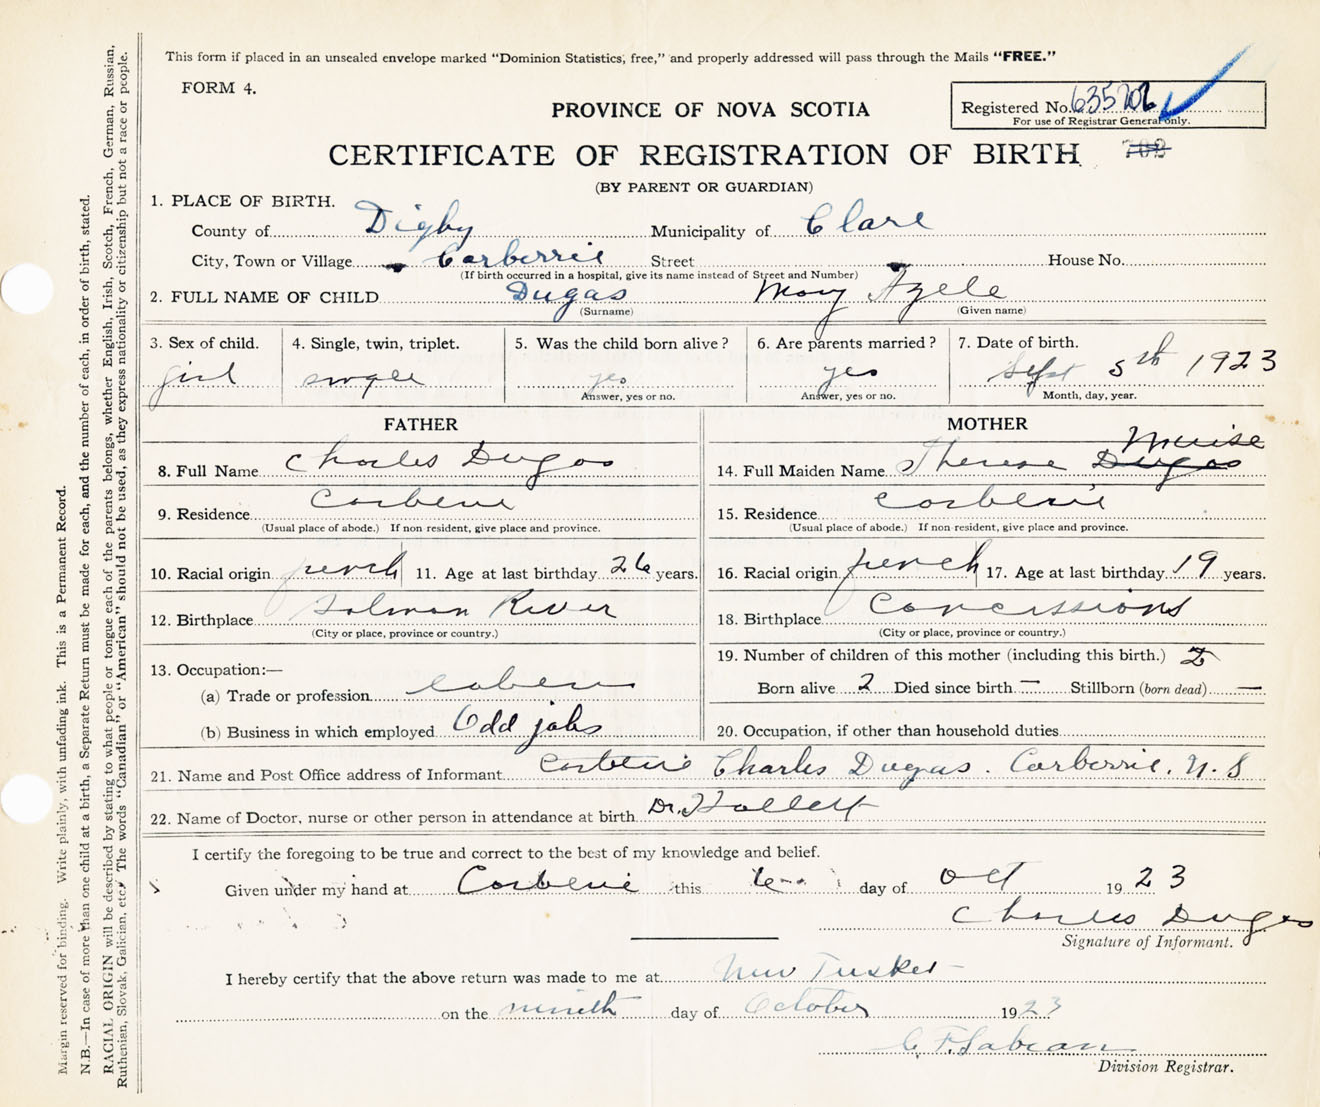 This form if placed in an unsealed envelope marked “Dominion Statistics, free,” and properly addressed will pass through the Mails “FREE.”
FORM 4.
PROVINCE OF NOVA SCOTIA
Registered No. 635202
For use of Registrar General only.
CERTIFICATE OF REGISTRATION OF BIRTH
(BY PARENT OR GUARDIAN)
1. PLACE OF BIRTH.
County of Digby Municipality of Clare
City, Town or Village Corberrie Street House No.
(If birth occurred in a hospital, give its name instead of Street and Number)
2. FULL NAME OF CHILD Dugas Mary Azele
(Surname) (Given name)
3. Sex of child. 4. Single, twin, triplet. 5. Was the child born alive? 6. Are parents married? 7. Date of birth.
girl single yes yes Sept 5th 1923
Answer, yes or no. Answer, yes or no. Month, day, year.
FATHER
8. Full Name Charles Dugas
9. Residence Corberie
(Usual place of abode.) If non resident, give place and province.
10. Racial origin french 11. Age at last birthday 26 years.
12. Birthplace Salmon River
(City or place, province or country.)
13. Occupation:—
(a) Trade or profession
(b) Business in which employed Odd jobs
MOTHER
Muise
14. Full Maiden Name Therese Dugas
15. Residence Corberie
(Usual place of abode.) If non-resident, give place and province.
16. Racial origin french 17. Age at last birthday 19 years.
18. Birthplace Concessions
(City or place, province or country.)
19. Number of children of this mother (including this birth.) 2
Born alive 2 Died since birth — Stillborn (born dead) —
20. Occupation, if other than household duties
21. Name and Post Office address of Informant Corberie Charles Dugas. Corberrie, N. S
22. Name of Doctor, nurse or other person in attendance at birth Dr.
I certify the foregoing to be true and correct to the best of my knowledge and belief.
Given under my hand at Corberie this day of Oct 1923
Charles Dugas
Signature of Informant.
I hereby certify that the above return was made to me at New Tusket
on the nineth day of October 1923
Division Registrar.
Margin reserved for binding. Write plainly, with unfading ink. This is a Permanent Record.
N.B.—In case of more than one child at a birth, a Separate Return must be made for each, and the number of each, in order of birth, stated.
RACIAL ORIGIN will be described by stating to what people or tongue each of the parents belongs, whether English, Irish, Scotch, French, German, Russian,
Ruthenian, Slovak, Galician, etc. The words “Canadian” or “American” should not be used, as they express nationality or citizenship but not a race or people.